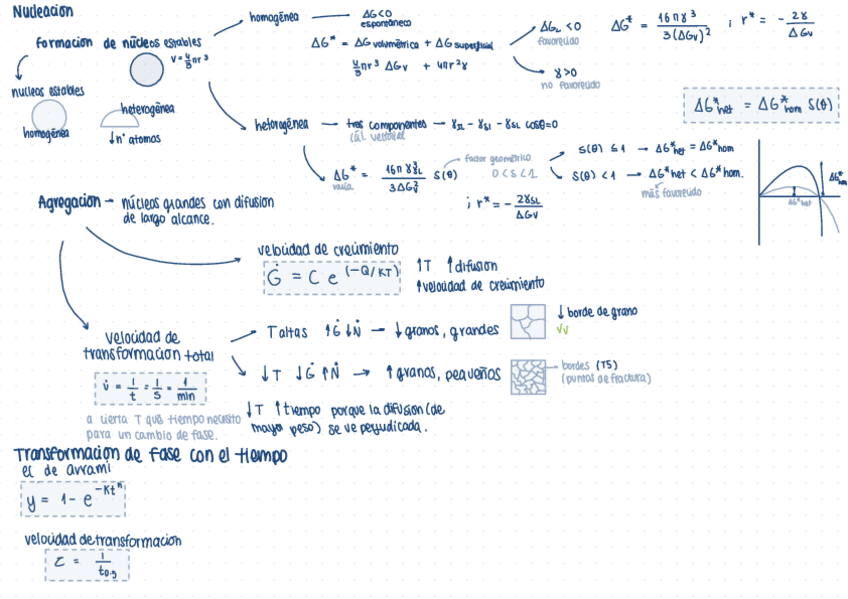 Nucleacion
formacion de núcleos estables
V = 4/3 πr³
nucleos estables
homogénea
heterogénea
↓nº atomos
homogénea
ΔG<0
espontáneo
ΔG* = ΔG volumétrica + ΔG superficial
4/3 πr³ ΔGv + 4πr²γ
<0
favorecido
γ>0
no favorecido
ΔG* = 16πγ³ / 3(ΔGv)² ; r* = - 2γ / ΔGv
ΔG*het = ΔG*hom S(θ)
heterogénea → tres componentes → γIL - γSI - γSL cosθ=0
cál. vectorial
ΔG* = 16πγ³SL / 3ΔG²v S(θ)
varía
factor geométrico
0<S<1
; r* = - 2γSL / ΔGv
S(θ) ≤ 1 → ΔG*het = ΔG*hom
S(θ) < 1 → ΔG*het < ΔG*hom.
más favorecido
ΔG*hom
ΔG*het
Agregación - núcleos grandes con difusion
de largo alcance.
velocidad de crecimiento
Ġ = C e^(-Q/KT)
↑T ↑difusion
↑velocidad de crecimiento
velocidad de
transformacion total
v̇ = 1/t = 1/s = 1/min
a cierta T que tiempo necesito
para un cambio de fase.
T altas ↑Ġ ↓Ṅ → ↓granos, grandes
↓ borde de grano
↓T ↓Ġ ↑Ṅ → ↑granos, pequeños
bordes (TS)
(puntos de fractura)
↓T ↑tiempo porque la difusion (de
mayor peso) se ve perjudicada.
Transformacion de fase con el tiempo
ec de avrami
y = 1- e^(-Kt^n)
velocidad de transformacion
τ = 1 / t0.5